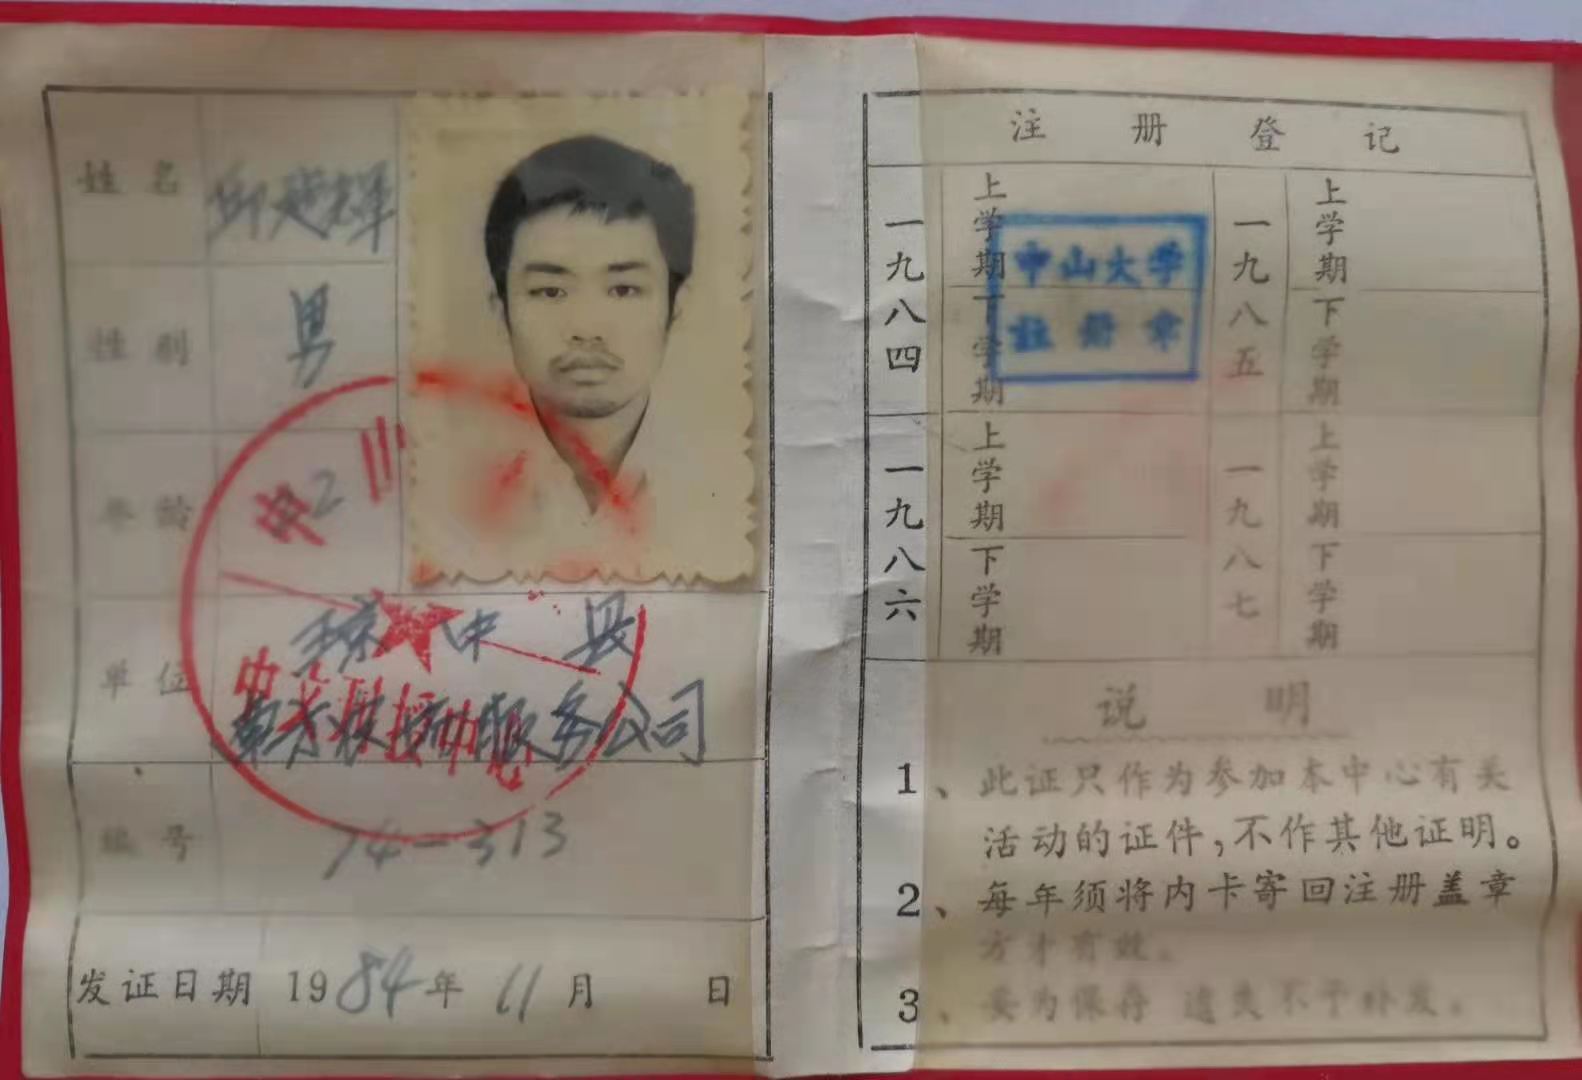 姓名 邱楚辉
性别 男
年龄 22
单位 琼中县
劳动服务公司
编号 74-313
发证日期 1984年 11月 日
注册登记
一九八四 上学期 下学期
中山大学
註册章
一九八五 上学期 下学期
一九八六 上学期 下学期
一九八七 上学期 下学期
说明
1、此证只作为参加本中心有关
活动的证件,不作其他证明。
2、每年须将内卡寄回注册盖章
方才有效。
3、妥为保存 遗失不予补发。